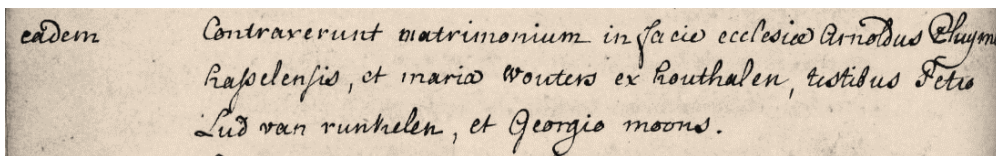 eadem Contraxerunt matrimonium in facie ecclesiæ Arnoldus
hasselensis, et maria Wouters ex houthalen, testibus Petro
Lud van runkelen, et Georgio moons.